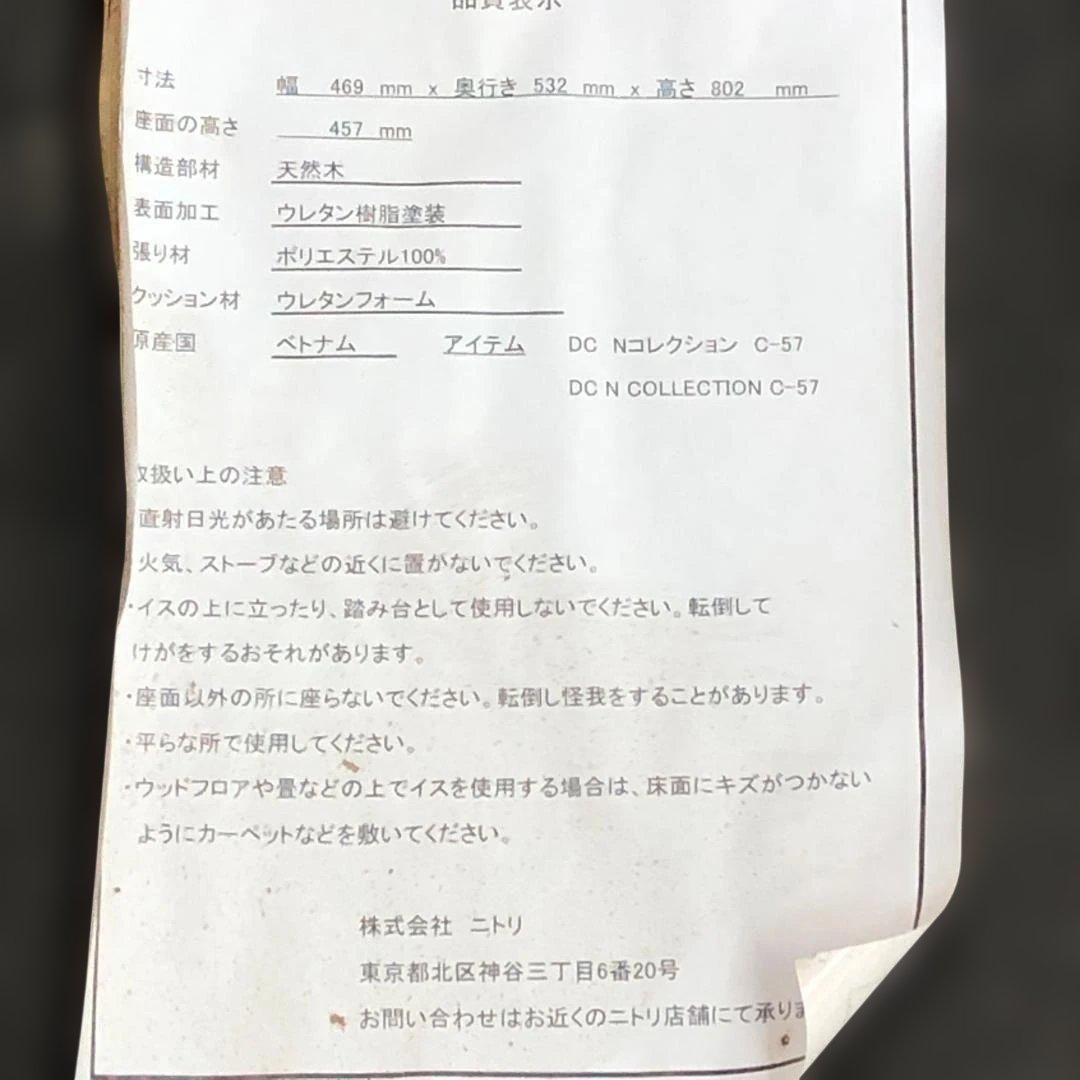 品質表示
寸法 幅 469 mm x 奥行き 532 mm x 高さ 802 mm
座面の高さ 457 mm
構造部材 天然木
表面加工 ウレタン樹脂塗装
張り材 ポリエステル100%
クッション材 ウレタンフォーム
原産国 ベトナム アイテム DC Nコレクション C-57
DC N COLLECTION C-57
取扱い上の注意
直射日光があたる場所は避けてください。
火気、ストーブなどの近くに置かないでください。
・イスの上に立ったり、踏み台として使用しないでください。転倒して
けがをするおそれがあります。
・座面以外の所に座らないでください。転倒し怪我をすることがあります。
・平らな所で使用してください。
・ウッドフロアや畳などの上でイスを使用する場合は、床面にキズがつかない
ようにカーペットなどを敷いてください。
株式会社 ニトリ
東京都北区神谷三丁目6番20号
お問い合わせはお近くのニトリ店舗にて承りま